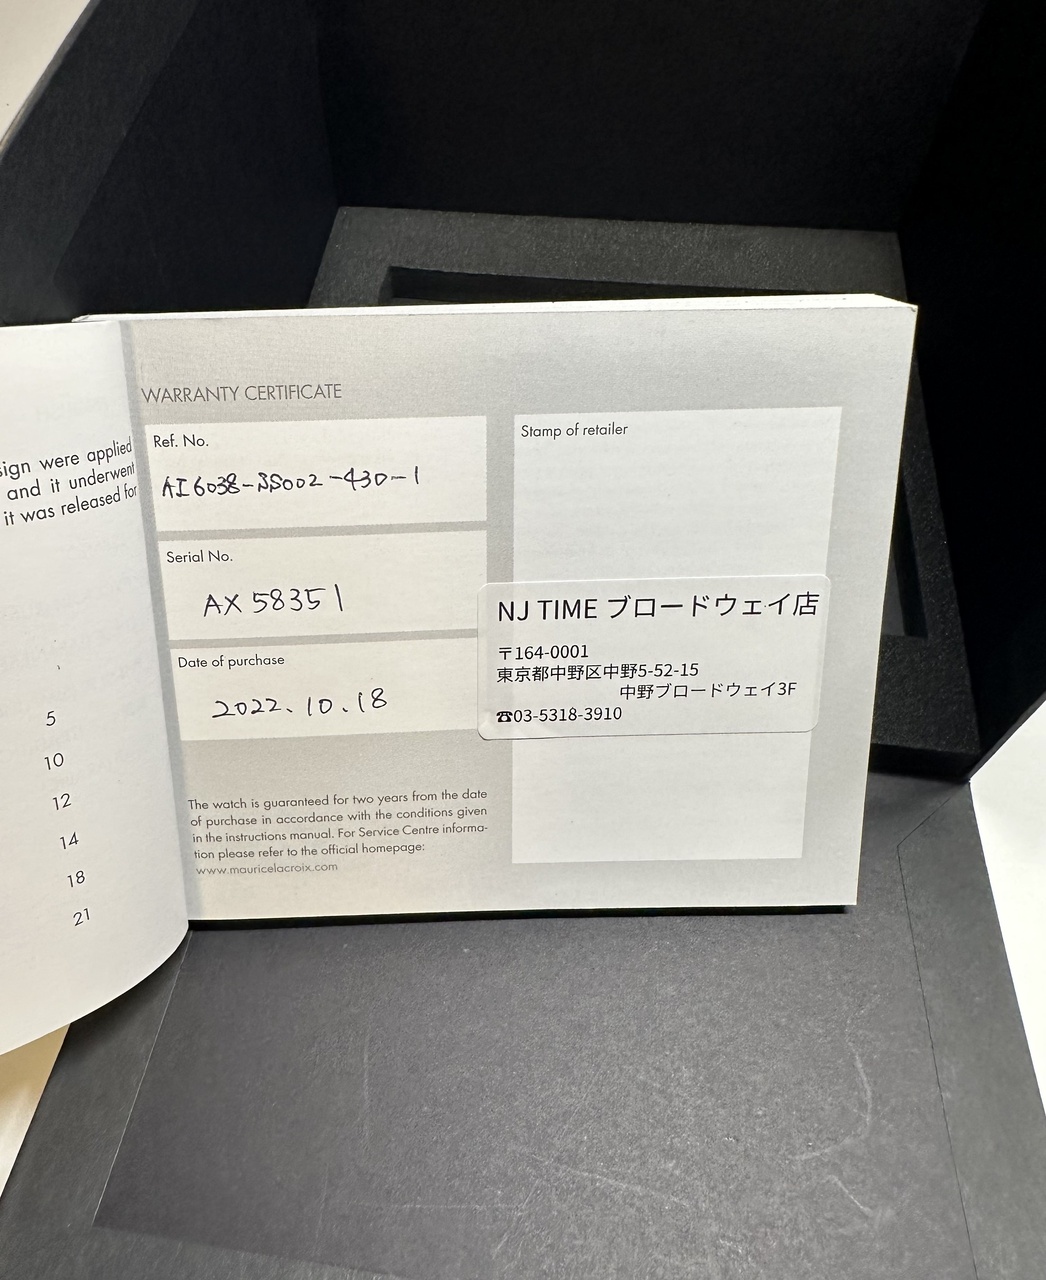 sign were applied
and it underwent
it was released for
5
10
12
14
18
21
WARRANTY CERTIFICATE
Ref. No.
AI6038-SS002-430-1
Serial No.
AX 58351
Date of purchase
2022.10.18
The watch is guaranteed for two years from the date
of purchase in accordance with the conditions given
in the instructions manual. For Service Centre informa-
tion please refer to the official homepage:
www.mauricelacroix.com
Stamp of retailer
NJ TIME ブロードウェイ店
〒164-0001
東京都中野区中野5-52-15
中野ブロードウェイ3F
☎03-5318-3910